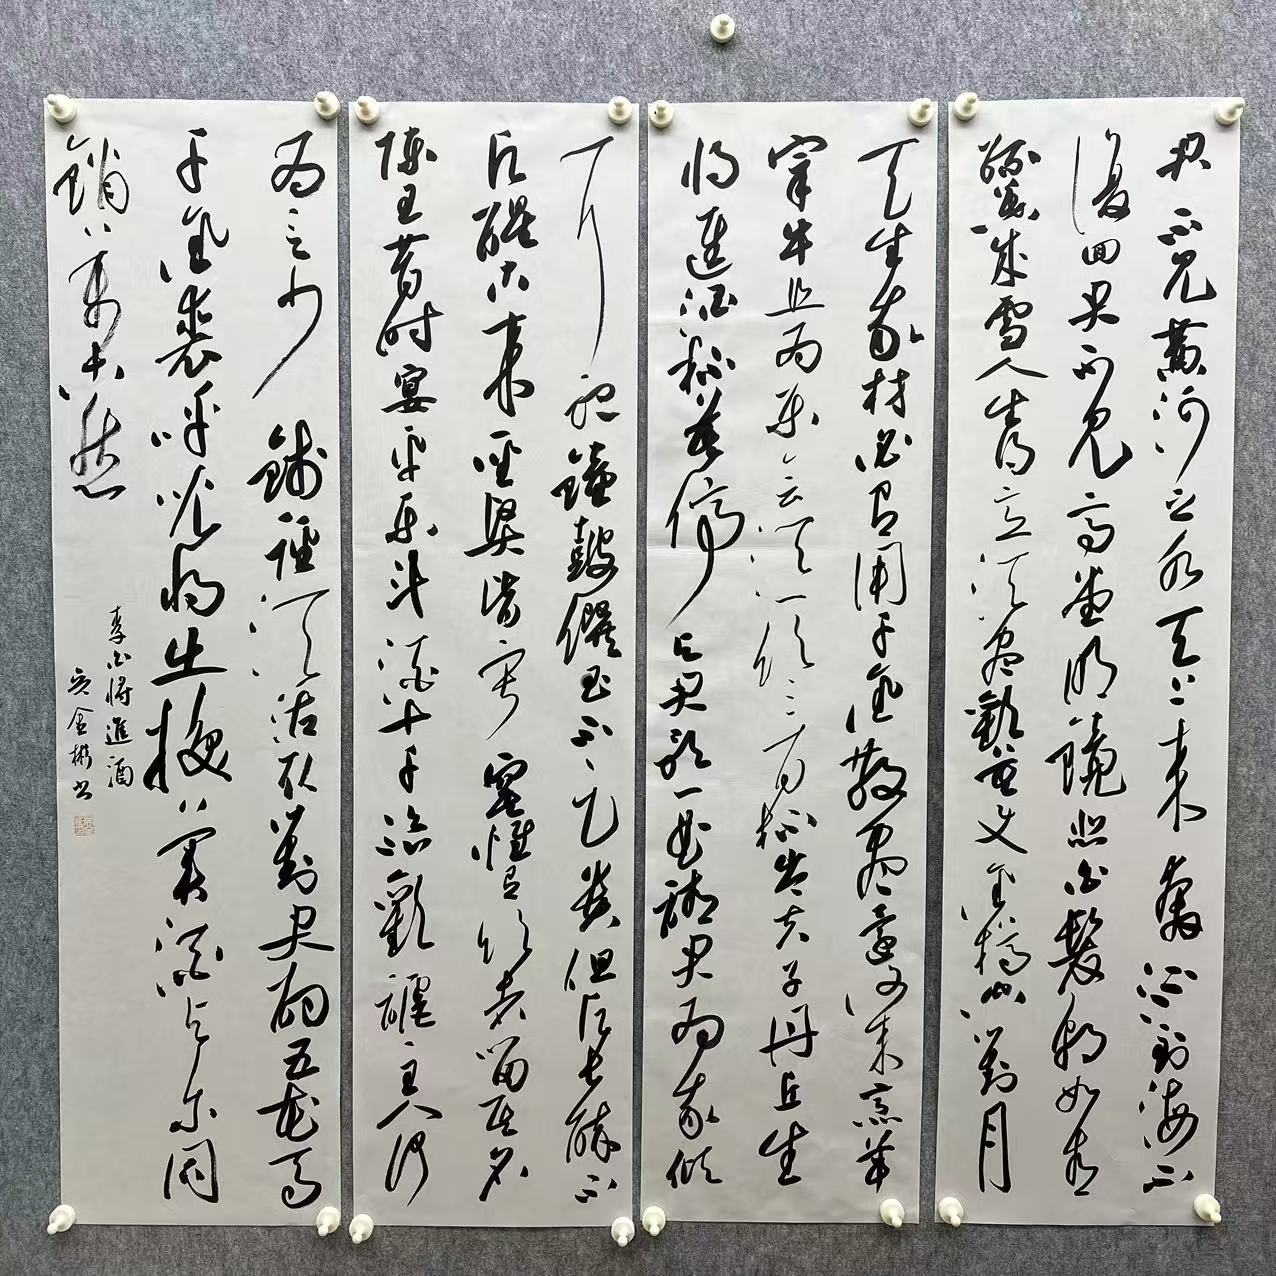 君不見黃河之水天上來奔流到海不
復回君不見高堂明鏡悲白髮朝如青
絲暮成雪人生得意須盡歡莫使金樽空對月
天生我材必有用千金散盡還復來烹羊
宰牛且為樂會須一飲三百杯岑夫子丹丘生
將進酒杯莫停與君歌一曲請君為我傾
耳聽鐘鼓饌玉不足貴但願長醉不
願醒古來聖賢皆寂寞惟有飲者留其名
陳王昔時宴平樂斗酒十千恣歡謔主人何
為言少錢徑須沽取對君酌五花馬
千金裘呼兒將出換美酒與爾同
銷萬古愁
李白將進酒
金彬书